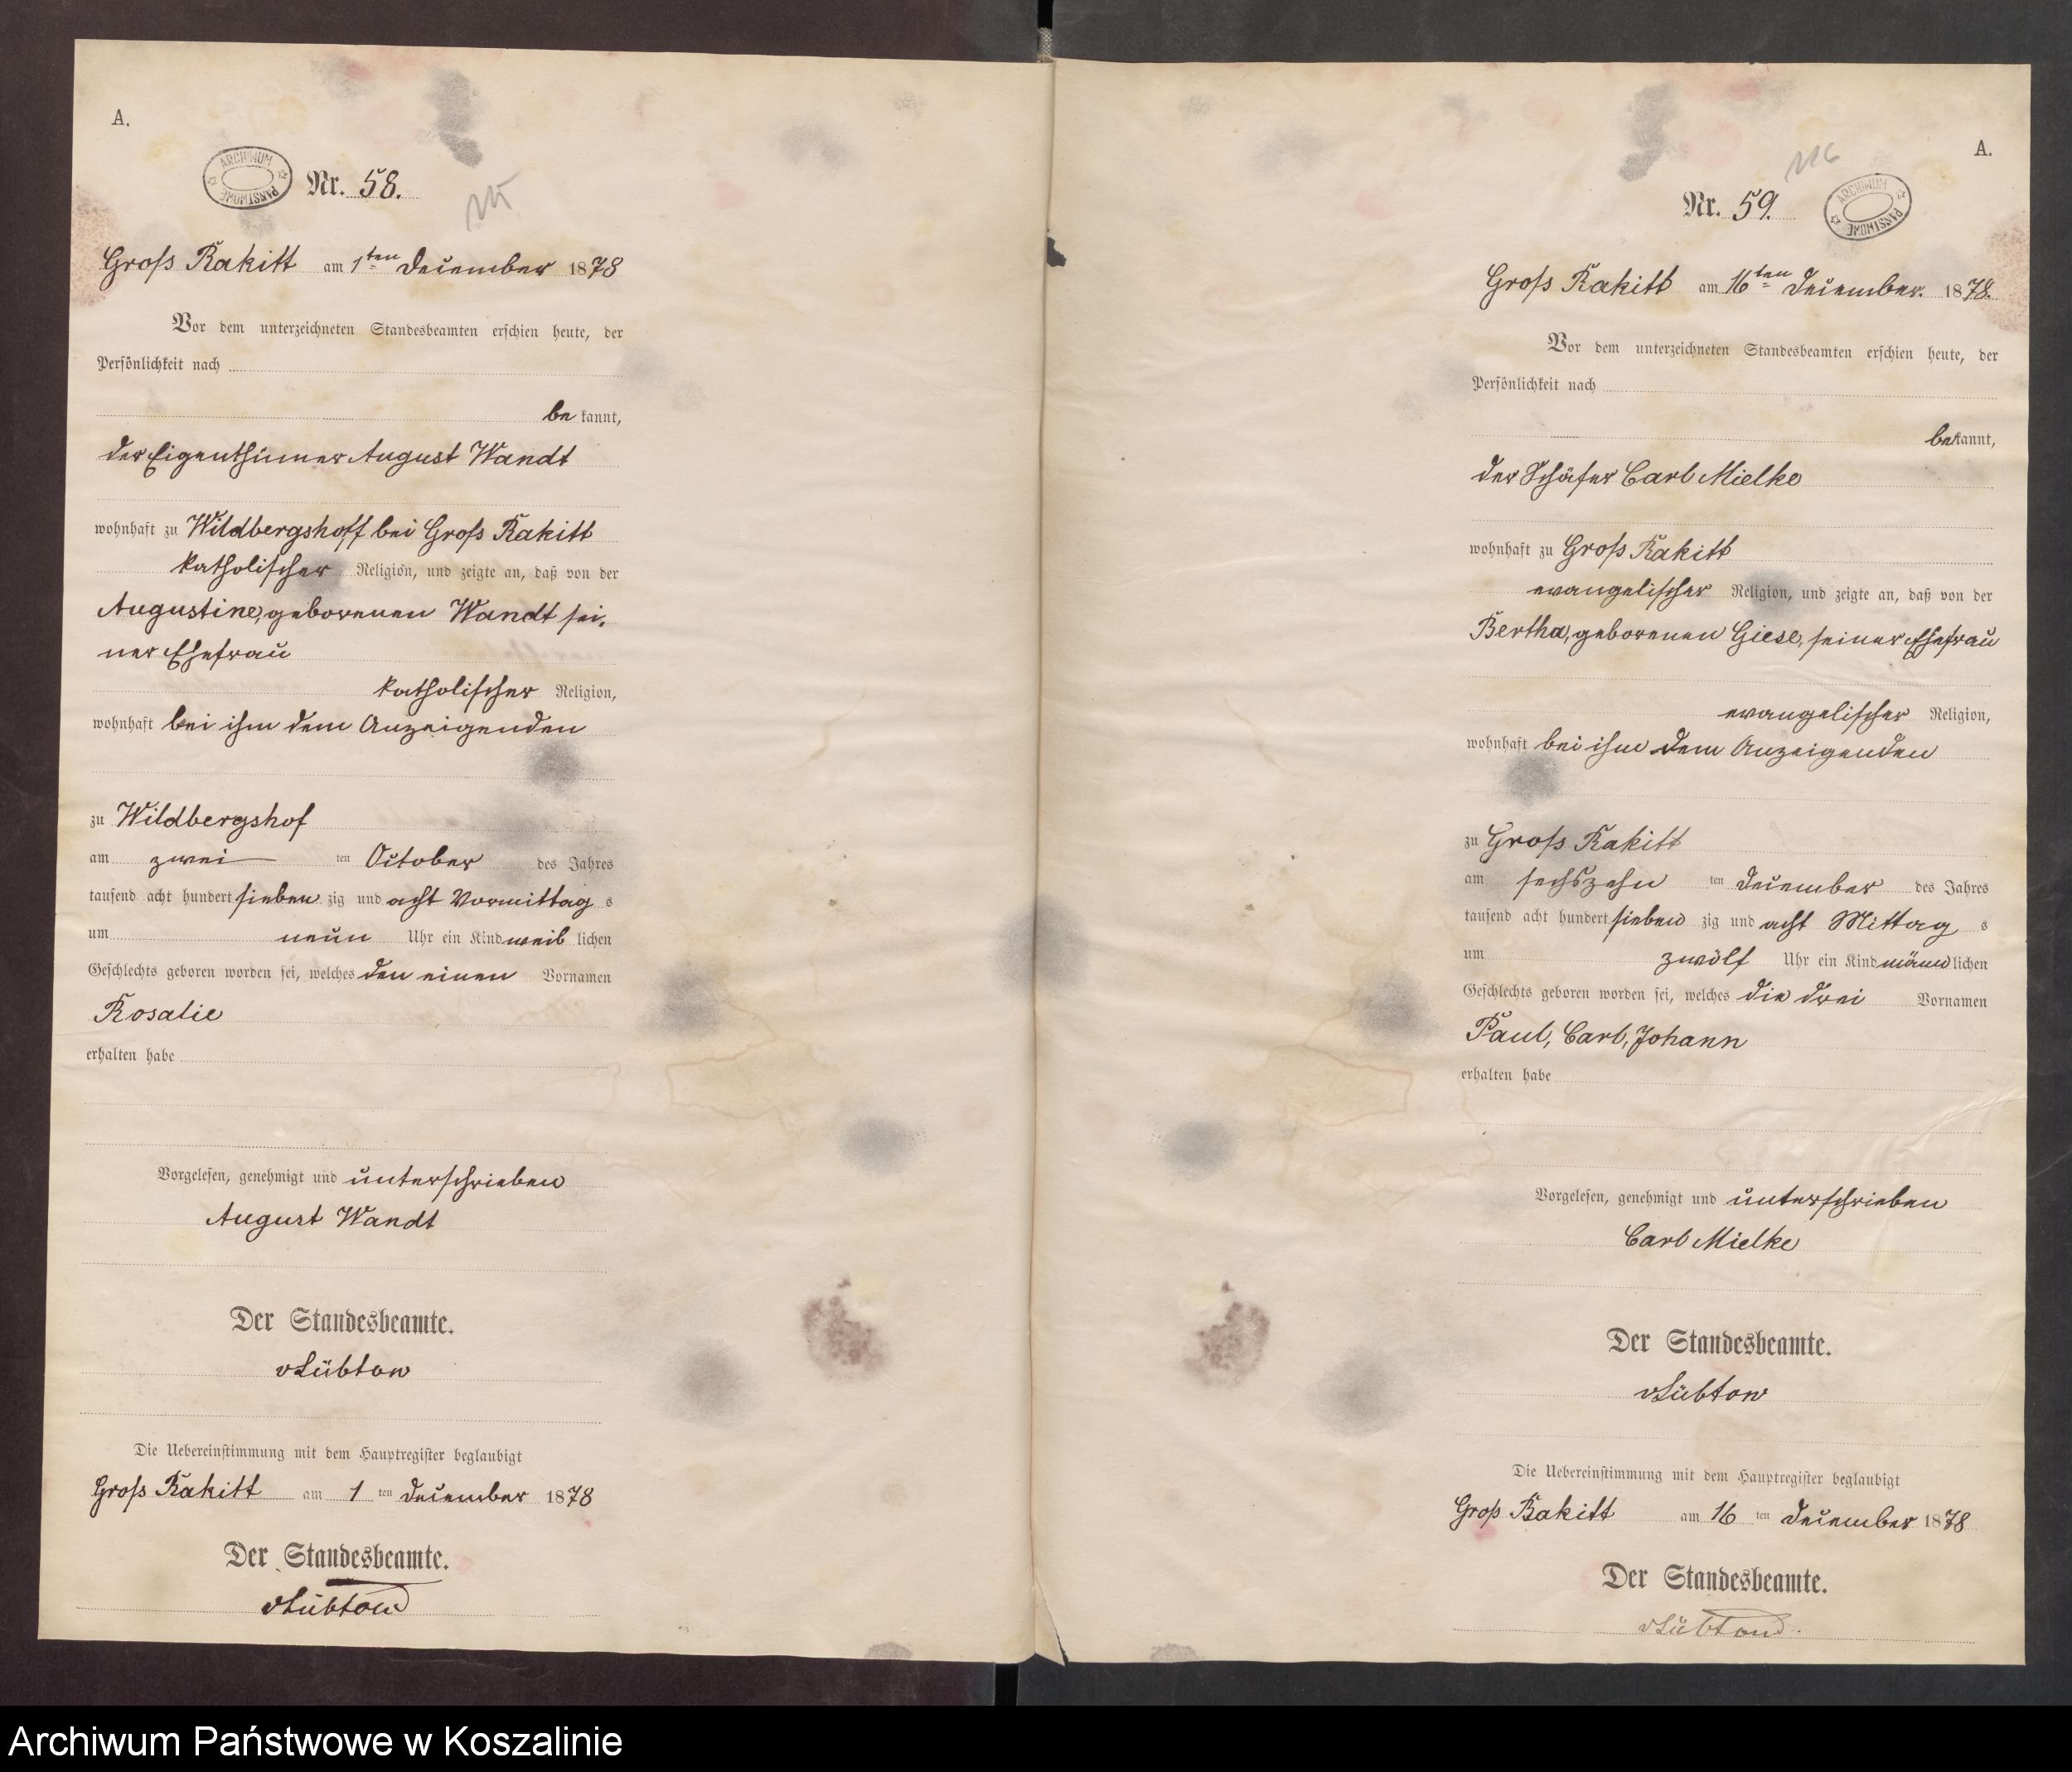 A.
ARCHIWUM PAŃSTWOWE
Nr. 58.
115
Groß Rakitt am 1ten December 1878
Vor dem unterzeichneten Standesbeamten erschien heute, der
Persönlichkeit nach
bekannt,
der Eigenthümer August Wandt
wohnhaft zu Wildbergshoff bei Groß Rakitt
katholischer Religion, und zeigte an, daß von der
Augustine, geborenen Wandt sei-
ner Ehefrau
katholischer Religion,
wohnhaft bei ihm dem Anzeigenden
zu Wildbergshof
am zwei ten October des Jahres
tausend acht hundert siebenzig und acht Vormittags
um neun Uhr ein Kind weiblichen
Geschlechts geboren worden sei, welches den einen Vornamen
Rosalie
erhalten habe
Vorgelesen, genehmigt und unterschrieben
August Wandt
Der Standesbeamte.
vLübtow
Die Uebereinstimmung mit dem Hauptregister beglaubigt
Groß Rakitt am 1ten December 1878
Der Standesbeamte.
vLübtow
A.
116
Nr. 59.
ARCHIWUM PAŃSTWOWE
Groß Rakitt am 16ten December. 1878.
Vor dem unterzeichneten Standesbeamten erschien heute, der
Persönlichkeit nach
bekannt,
der Schäfer Carl Mielke
wohnhaft zu Groß Rakitt
evangelischer Religion, und zeigte an, daß von der
Bertha, geborenen Giese, seiner Ehefrau
evangelischer Religion,
wohnhaft bei ihm dem Anzeigenden
zu Groß Rakitt
am sechszehn ten December des Jahres
tausend acht hundert siebenzig und acht Mittags
um zwölf Uhr ein Kind männlichen
Geschlechts geboren worden sei, welches die drei Vornamen
Paul, Carl, Johann
erhalten habe
Vorgelesen, genehmigt und unterschrieben
Carl Mielke
Der Standesbeamte.
vLübtow
Die Uebereinstimmung mit dem Hauptregister beglaubigt
Groß Rakitt am 16ten December 1878
Der Standesbeamte.
vLübtow.
Archiwum Państwowe w Koszalinie